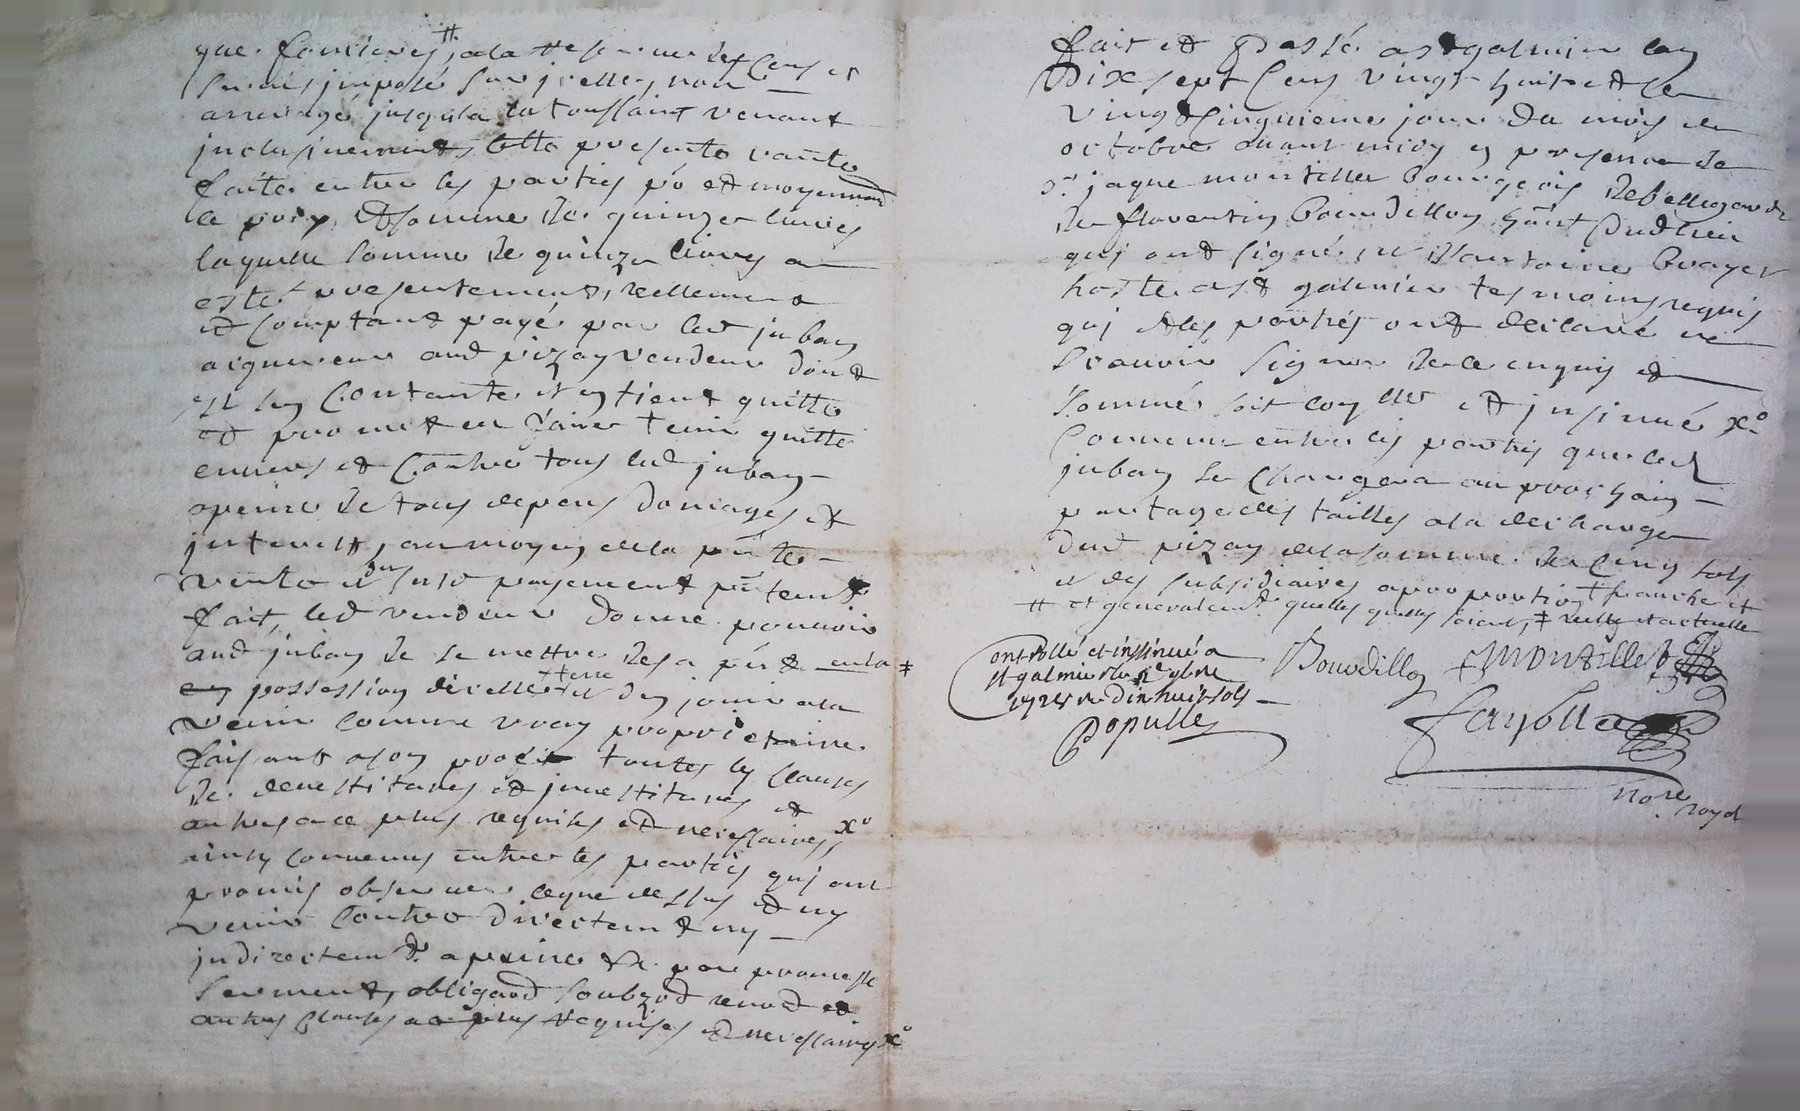 que foncieres ##, a la reserve des Cens et
servis imposé sur jcelle, non
arreragé jusqu'a la toussaint venant
jnclusivement, Cette presente vante
faite entre les parties po et moyennant
le prix et somme de quinze livres
laquelle somme de quinze livres a
esté presentement, reellement
et Comptant payé par led juban
aiquereur aud pizay vendeur dont
il sen Contante et en tient quitte
et promet en faire tenir quitte
envers et Contre tous led juban
a peine de tous depens domages et
jnterest, au moyen de la pnte
vente et du susd payement pntemt
fait, led vendeur donne pouvoir
aud juban de se mettre des a pnt en la ‡
en possession dicelle terre et den jouir a la
venir comme vray proprietaire
faisant a son profit toutes les Clauses
de devestitures et jnvestitures et
autres a ce plus requises et necessaires, xo
ainsy convenus entre les parties qui ont
promis observer ceque dessus et ny
venir Contre directemt ny
jndirectemt a peine & par promesse
serment, obligaōn soubzōn renoōn et
autres Clauses a ce plus requises et necessaires xo
fait et Passé a st galmier lan
Dix sept Cens vingt huit et le
vingt cinquieme jour du mois de
octobre avant midy en presence de
sr jaque montillet bourgeois de bellegarde
de florentin bourdillon
qui ont signé, et d'antoine boayer
hoste a st galmier tesmoins requis
qui et les parties ont declaré ne
scavoir signer de ce enquis et
sommé soit conllé et jnsinué xo
Convenu entre les parties que led
juban se Chargera au prochain
partage des tailles a la decharge
dud pizay de la somme de Cinq sols
et des subsidiaires a proportion † franche et
## et generalemt quelles quelles soient, ‡ reelle et actuelle
Controllé et insinué a
st galmier le 8bre
1728 re dix huit sols
Populle
Bourdillon
Montillet
fayolle
nore royal